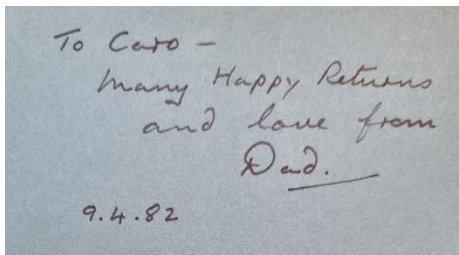 To Caro –
Many Happy Returns
and love from
Dad.
9.4.82